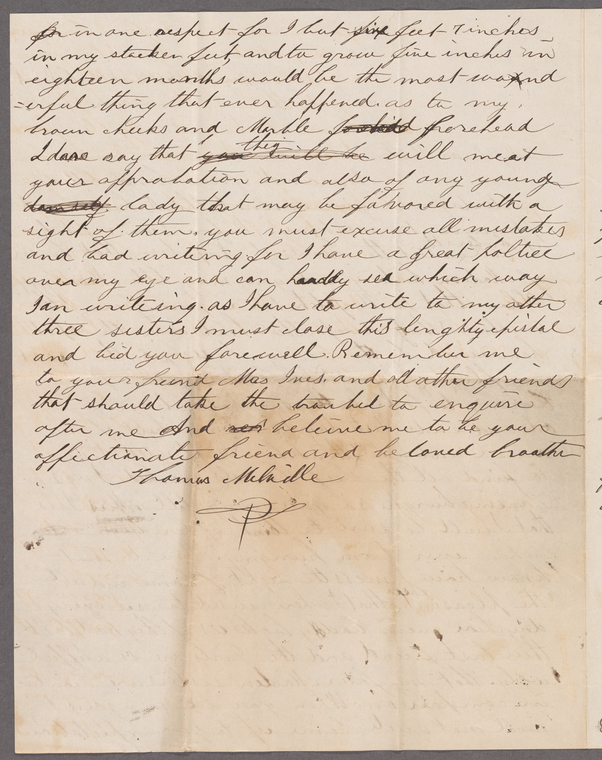 for in one respect for I but five feet 7 inches
in my stocken feet, and to grow five inches in
eighteen months would be the most wond
=erful thing that ever happened. as to my
brown cheeks and Marble forehead
I dare say that they will meat
your approbation and also of any young
lady that may be favored with a
sight of them. you must excuse all mistakes
and bad writing for I have a great poltice
over my eye and can hardly see which way
I an writeing. as I have to write to my other
three sisters I must close this lenghty epistal
and bid you farewell. Remember me
to your freind Mrs Ives. and all other friends
that should take the troubel to enquire
after me And beleive me to be your
affictionate friend and beloved broother
Thomas Melville